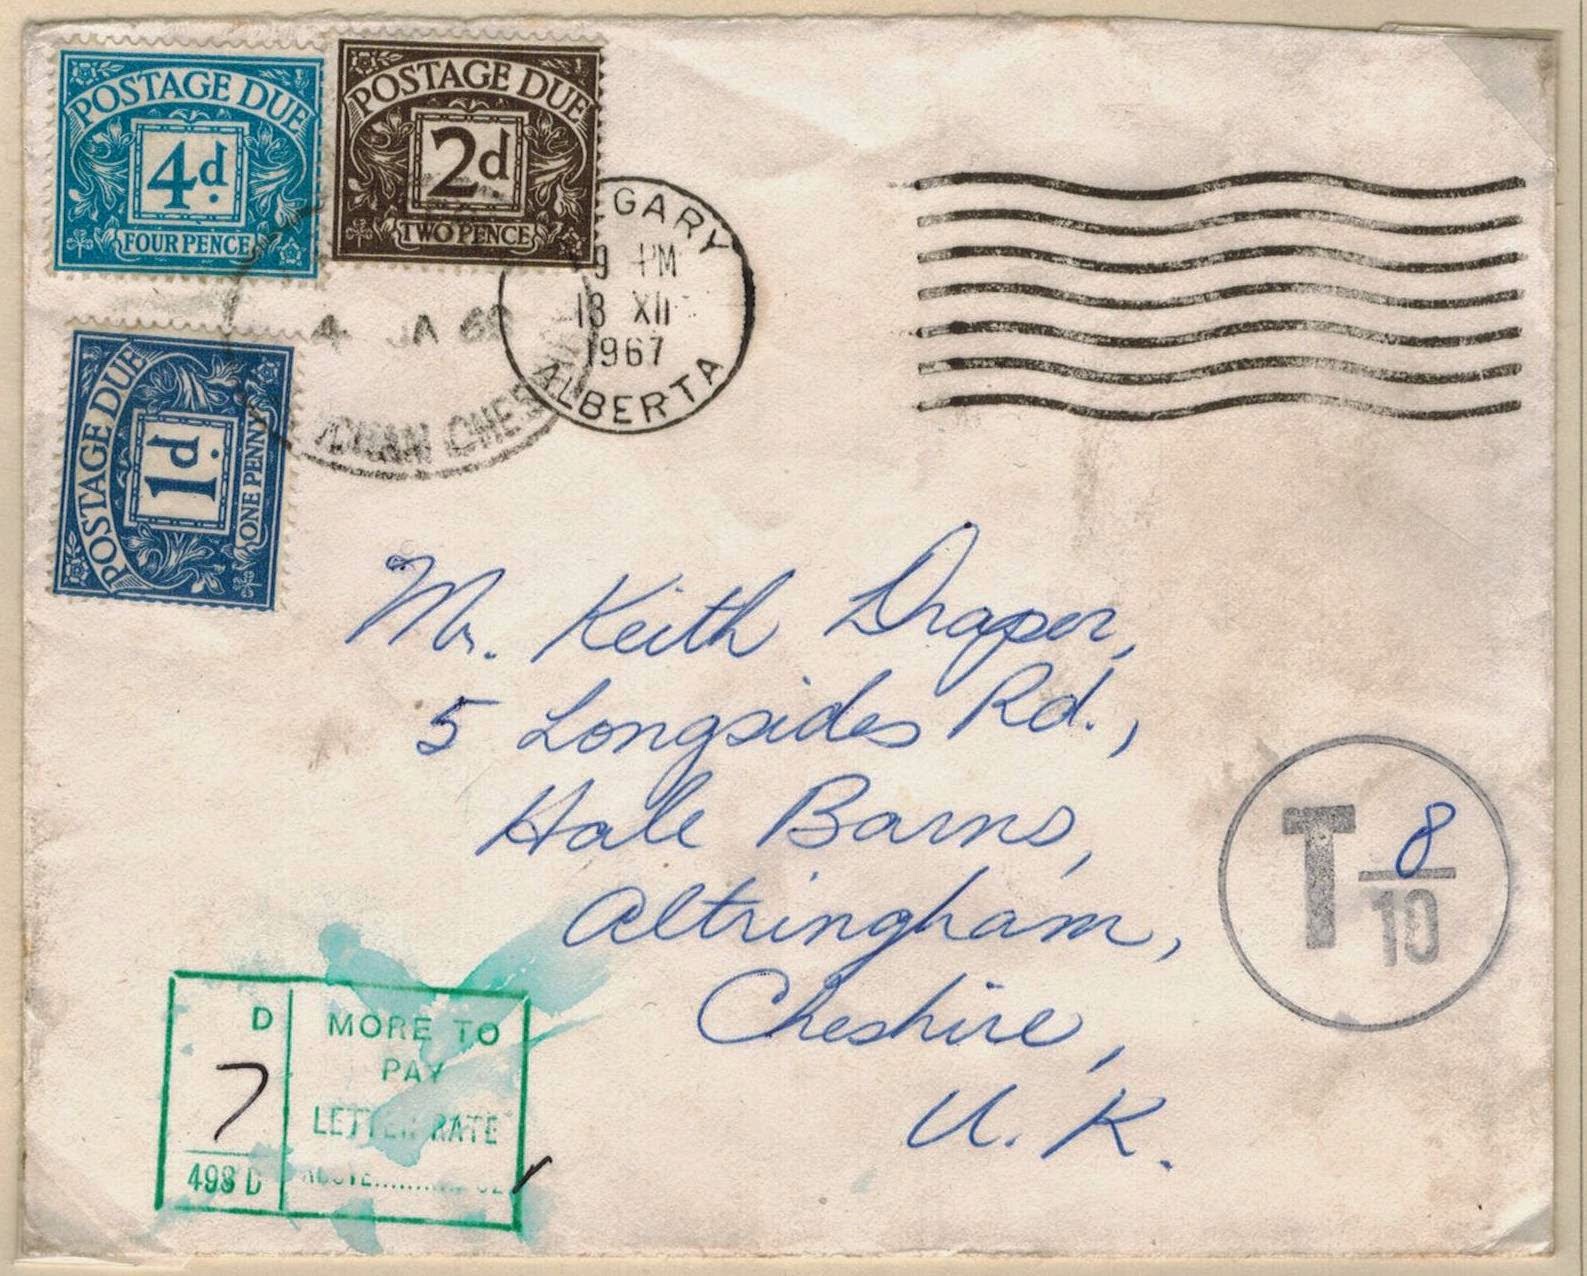 POSTAGE DUE
4d.
FOUR PENCE
POSTAGE DUE
2d.
TWO PENCE
POSTAGE DUE
1d.
ONE PENNY
GARY
9 PM
13 XII
1967
ALBERTA
4 JA 68
CHES
Mr. Keith Draper,
5 Longsides Rd.,
Hale Barns,
Altringham,
Cheshire,
U.K.
T 8
10
D
7
498 D
MORE TO
PAY
LETTER RATE
ABOVE